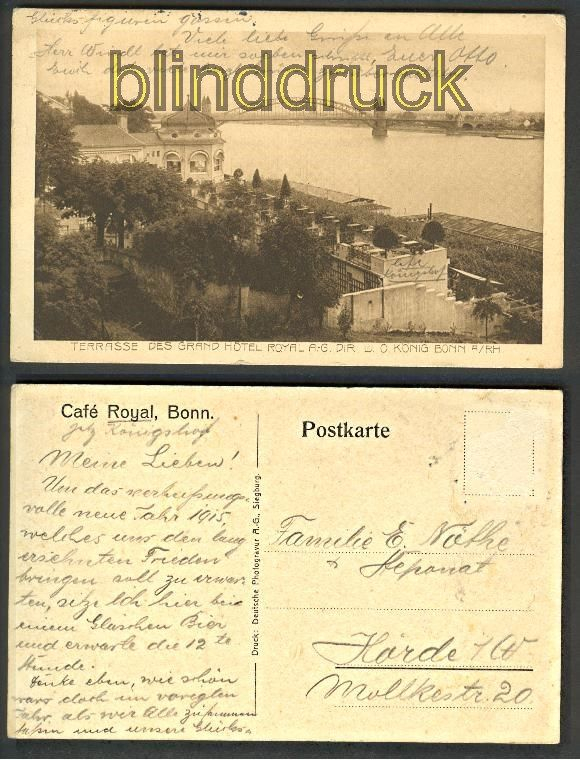 Glücksfiguren gossen.
Viele liebe Grüße an Alle
Euer Otto
blinddruck
Café
Königshof
TERRASSE DES GRAND HÔTEL ROYAL A.-G. DIR. W. O. KÖNIG BONN A/RH.
Café Royal, Bonn.
jetz Königshof
Meine Lieben!
Um das verheißungs-
volle neue Jahr 1915,
welches uns den lang
ersehnten Frieden
bringen soll zu erwar-
ten, sitze Ich hier bei
einem Gläschen Bier
und erwarte die 12 te
Stunde.
Denke eben, wie schön
wars doch im vorigen
Jahr, als wir Alle zusammen
saßen und unsere Glücks-
Druck: Deutsche Photogravur A.-G., Siegburg.
Postkarte
Familie E. Nöthe
Hörde i/W
Moltkestr. 20.